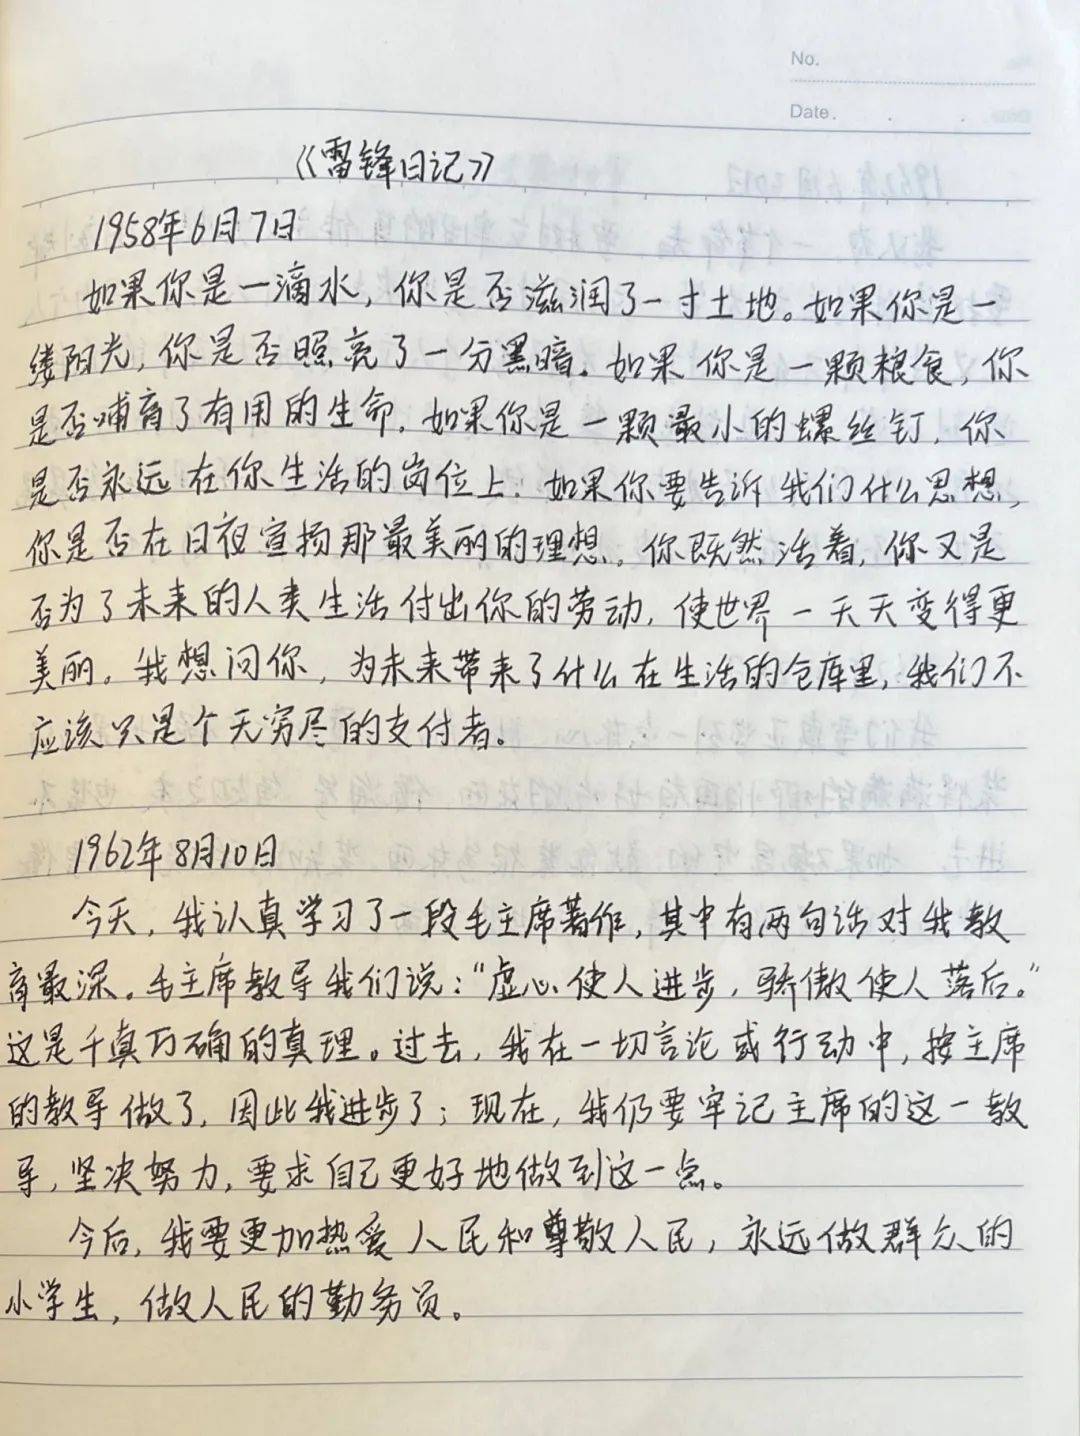 No.
Date.
《雷锋日记》
1958年6月7日
如果你是一滴水，你是否滋润了一寸土地。如果你是一
缕阳光，你是否照亮了一分黑暗。如果你是一颗粮食，你
是否哺育了有用的生命。如果你是一颗最小的螺丝钉，你
是否永远在你生活的岗位上。如果你要告诉我们什么思想，
你是否在日夜宣扬那最美丽的理想。你既然活着，你又是
否为了未来的人类生活付出你的劳动，使世界一天天变得更
美丽。我想问你，为未来带来了什么在生活的仓库里，我们不
应该只是个无穷尽的支付者。
1962年8月10日
今天，我认真学习了一段毛主席著作，其中有两句话对我教
育最深。毛主席教导我们说：“虚心使人进步，骄傲使人落后。”
这是千真万确的真理。过去，我在一切言论或行动中，按主席
的教导做了，因此我进步了；现在，我仍要牢记主席的这一教
导，坚决努力，要求自己更好地做到这一点。
今后，我要更加热爱人民和尊敬人民，永远做群众的
小学生，做人民的勤务员。